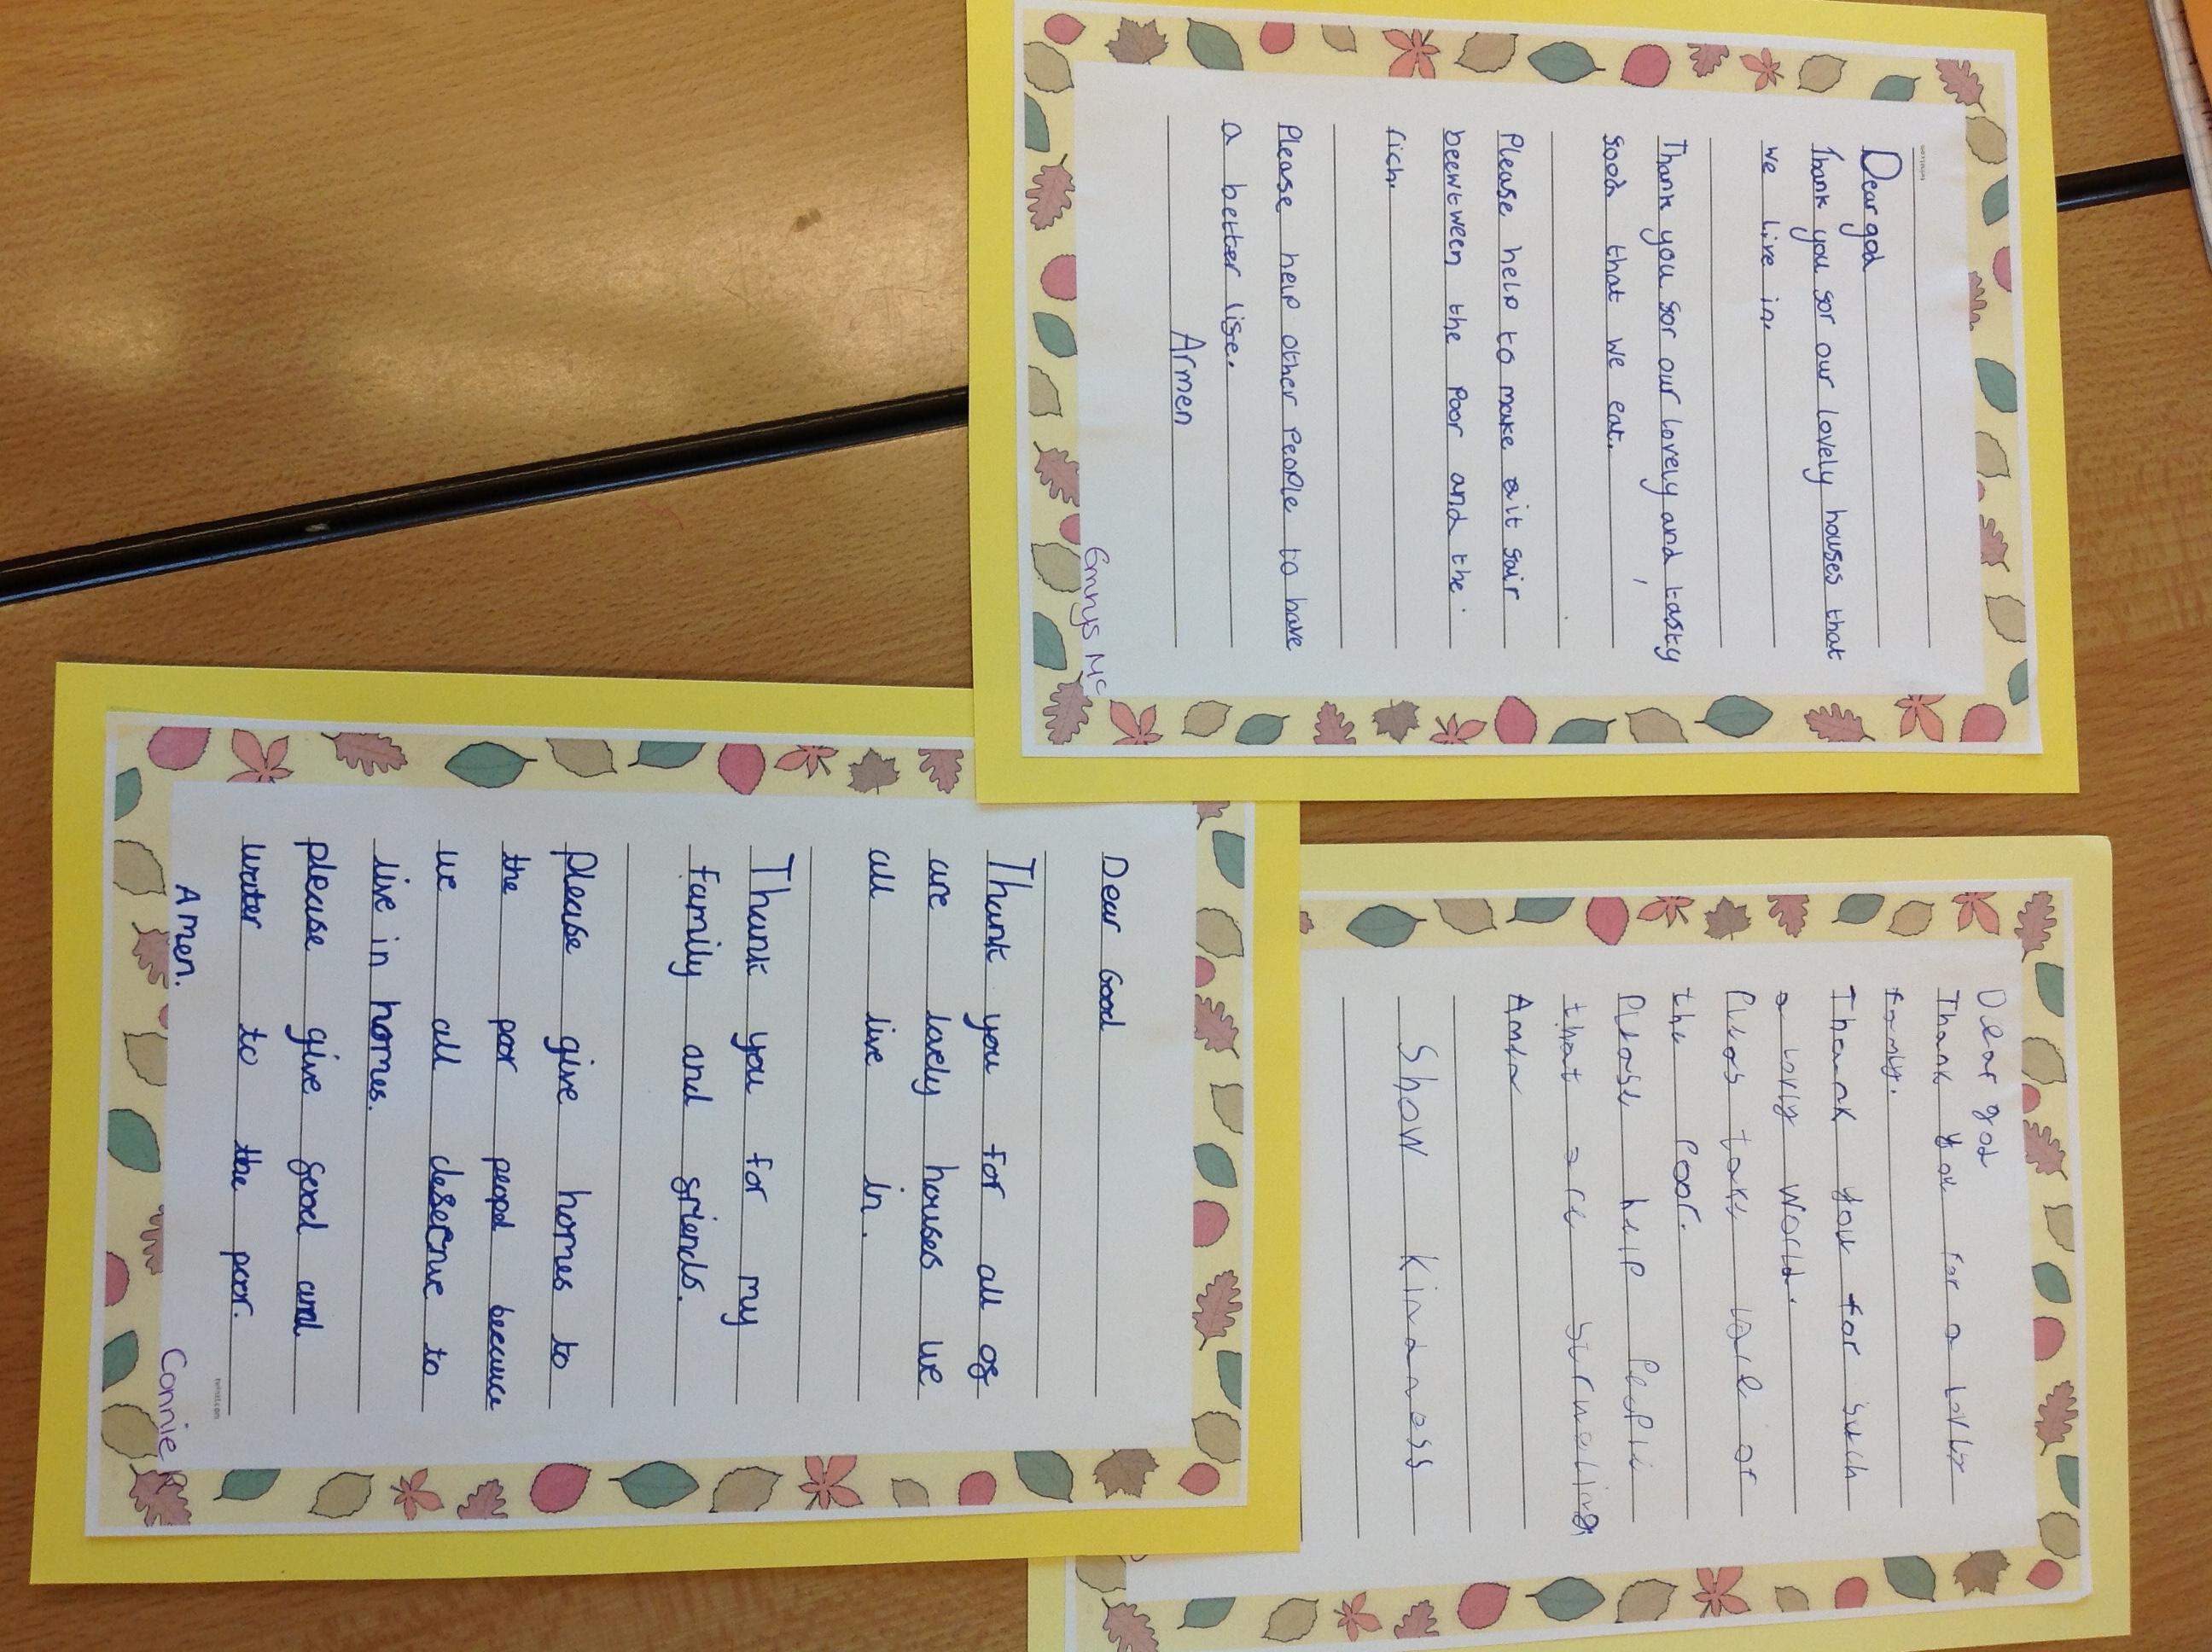 Dear god
Thank you sor our lovely houses that
we live in.
Thank you sor our lovely and tasty
sood that we eat.
Please help to make it sair
beewtween the Poor and the
rich.
Please help other People to have
a better lise.
Armen
Emnys Mc
Dear Good
Thank you for all os
are lovely houses we
all live in.
Thank you for my
family and sriends.
please give homes to
the poor peopl because
we all deserve to
live in homes.
please give sood and
water to the poor.
Amen.
Connie
twinkl.com
Dear god
Thank you for a
famly.
Thank you for such
a lovly world.
Pleas take care or
the Poor.
Please help People
that are
Amen
Show kindness